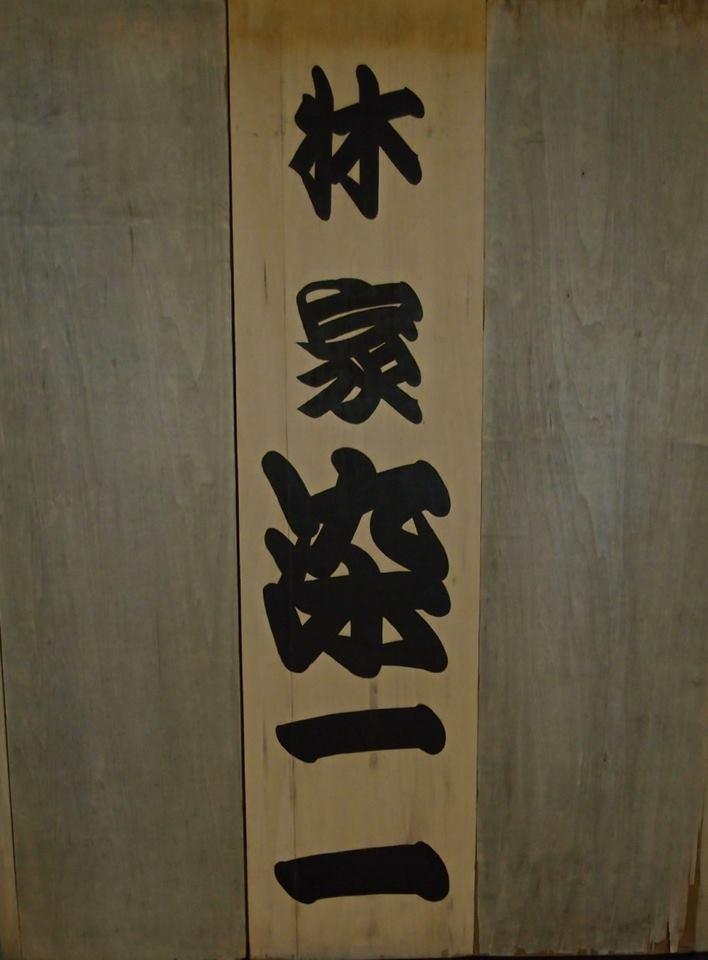 林家染二